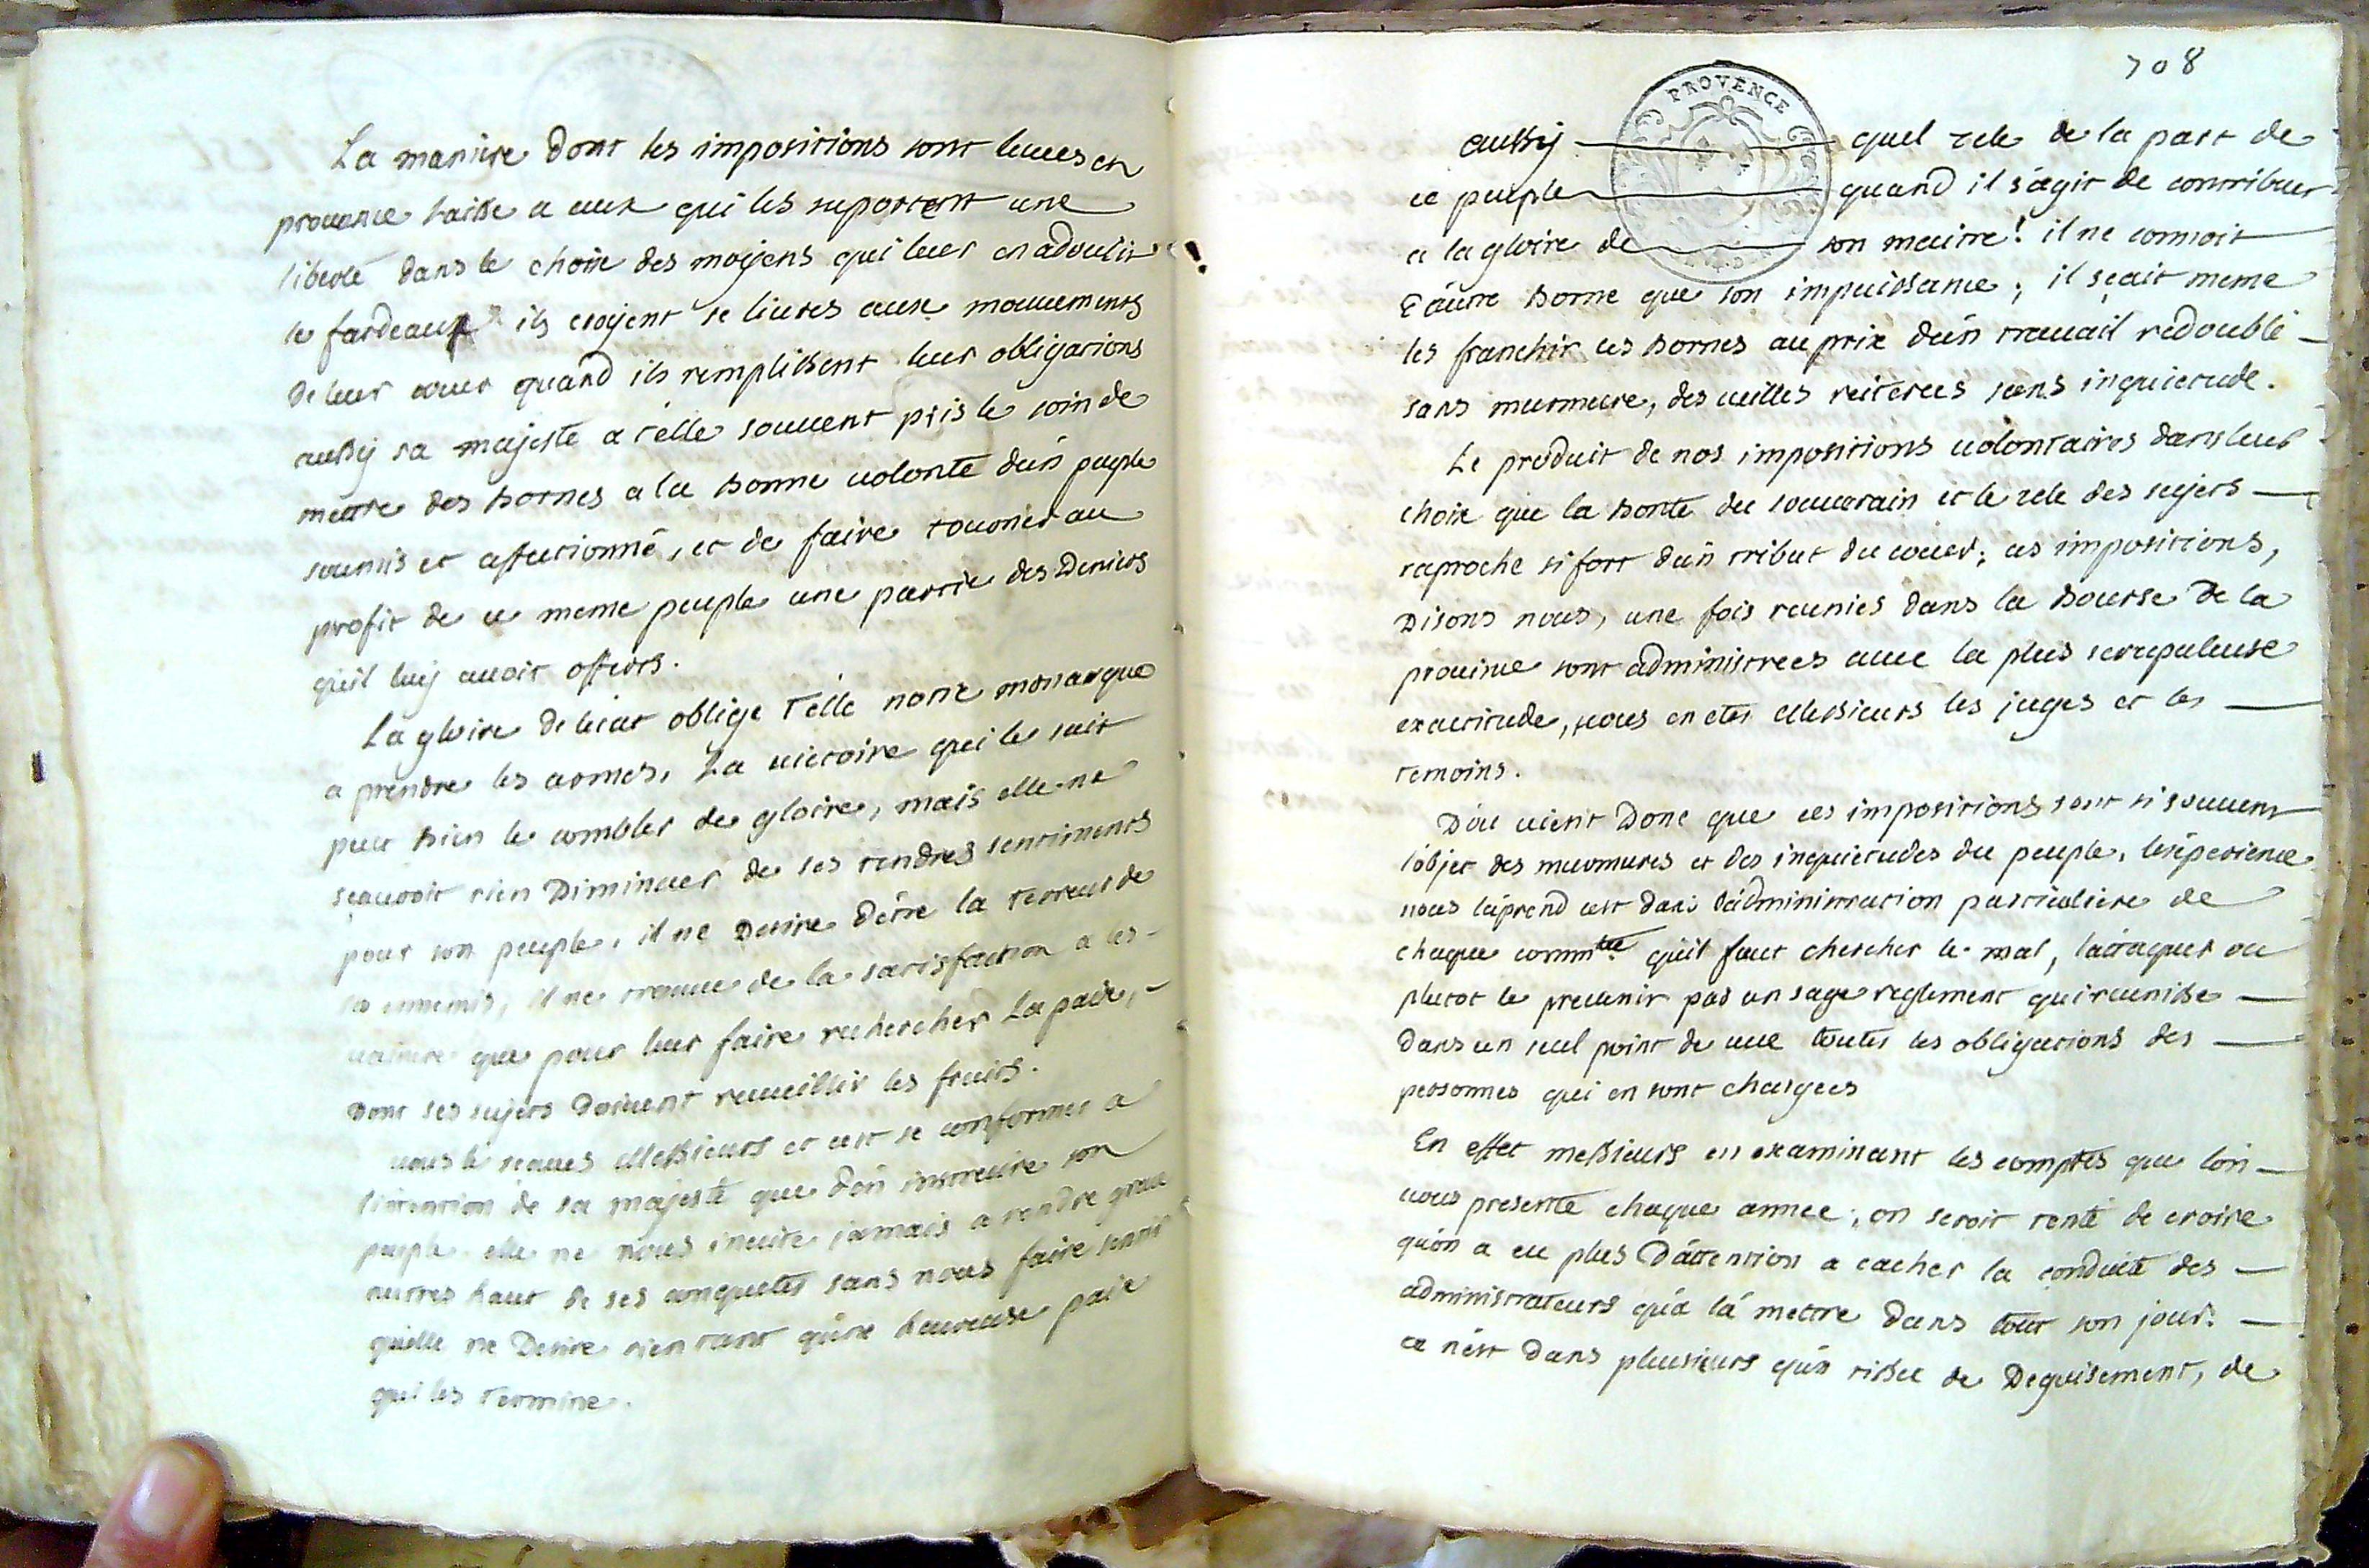 La maniere dont les impositions sont leuees en
prouence laisse a ceux qui les suportent une
liberté dans le choix des moyens qui leur en adoucit
le fardeaux ils croyent se liurer aux mouuements
de leur coeur quand ils remplissent leur obligations
aussy sa majesté a t'elle souuent pris le soin de
mettre des bornes a la bonne uolonté d'un peuple
soumis et affectionné, et de faire tourner au
profit de ce meme peuple une partie des deniers
qu'il luy auoit offerts.
La gloire de letat oblige t'elle notre monarque
a prendre les armes. La uictoire qui le suit
peut bien le combler de gloire, mais elle ne
sçauroit rien diminuer de ses tendres sentiments
pour son peuple, il ne desire d'etre la terreur de
ses ennemis, il ne trouue de la satisfaction a les
uaincre que pour leur faire rechercher La paix,
dont ses sujets doiuent recueillir les fruits.
uous le scaues Messieurs et cest se conformer a
l'intention de sa majesté que d'en instruire son
peuple elle ne nous inuite jamais a rendre grace
au tres haut de ses conquetes sans nous faire sentir
quelle ne desire rien tant qu'une heureuse paix
qui les termine.
708
PROVENCE
aussy quel zele de la part de
ce peuple quand il s'agit de contribuer
a la gloire de son maitre! il ne connoit
d'autre borne que son impuissance; il sçait meme
les franchir ces bornes au prix d'un trauail redoublé
sans murmure, des ueilles reiterees sans inquietude.
Le produit de nos impositions uolontaires dans leur
choix que la bonté du souuerain et le zele des sujets
raproche si fort d'un tribut du coeur; ces impositions,
disons nous, une fois reunies dans la bourse de la
prouince sont administrees auec la plus scrupuleuse
exactitude, uous en etes Messieurs les juges et les
temoins.
D'ou uient donc que ces impositions sont si souuent
l'objet des murmures et des inquietudes du peuple, l'experience
nous l'aprend cest dans l'administration particuliere de
chaque commté qu'il faut chercher le mal, l'attaquer ou
plutot le preuenir par un sage reglement qui reunisse
dans un seul point de uue toutes les obligations des
personnes qui en sont chargees
En effet messieurs en examinant les comptes que lon
uous presente chaque annee, on seroit tenté de croire
qu'on a eu plus d'attention a cacher la conduite des
administrateurs qu'a la mettre dans tout son jour.
ce n'est dans plusieurs qu'un tissu de deguisement, de